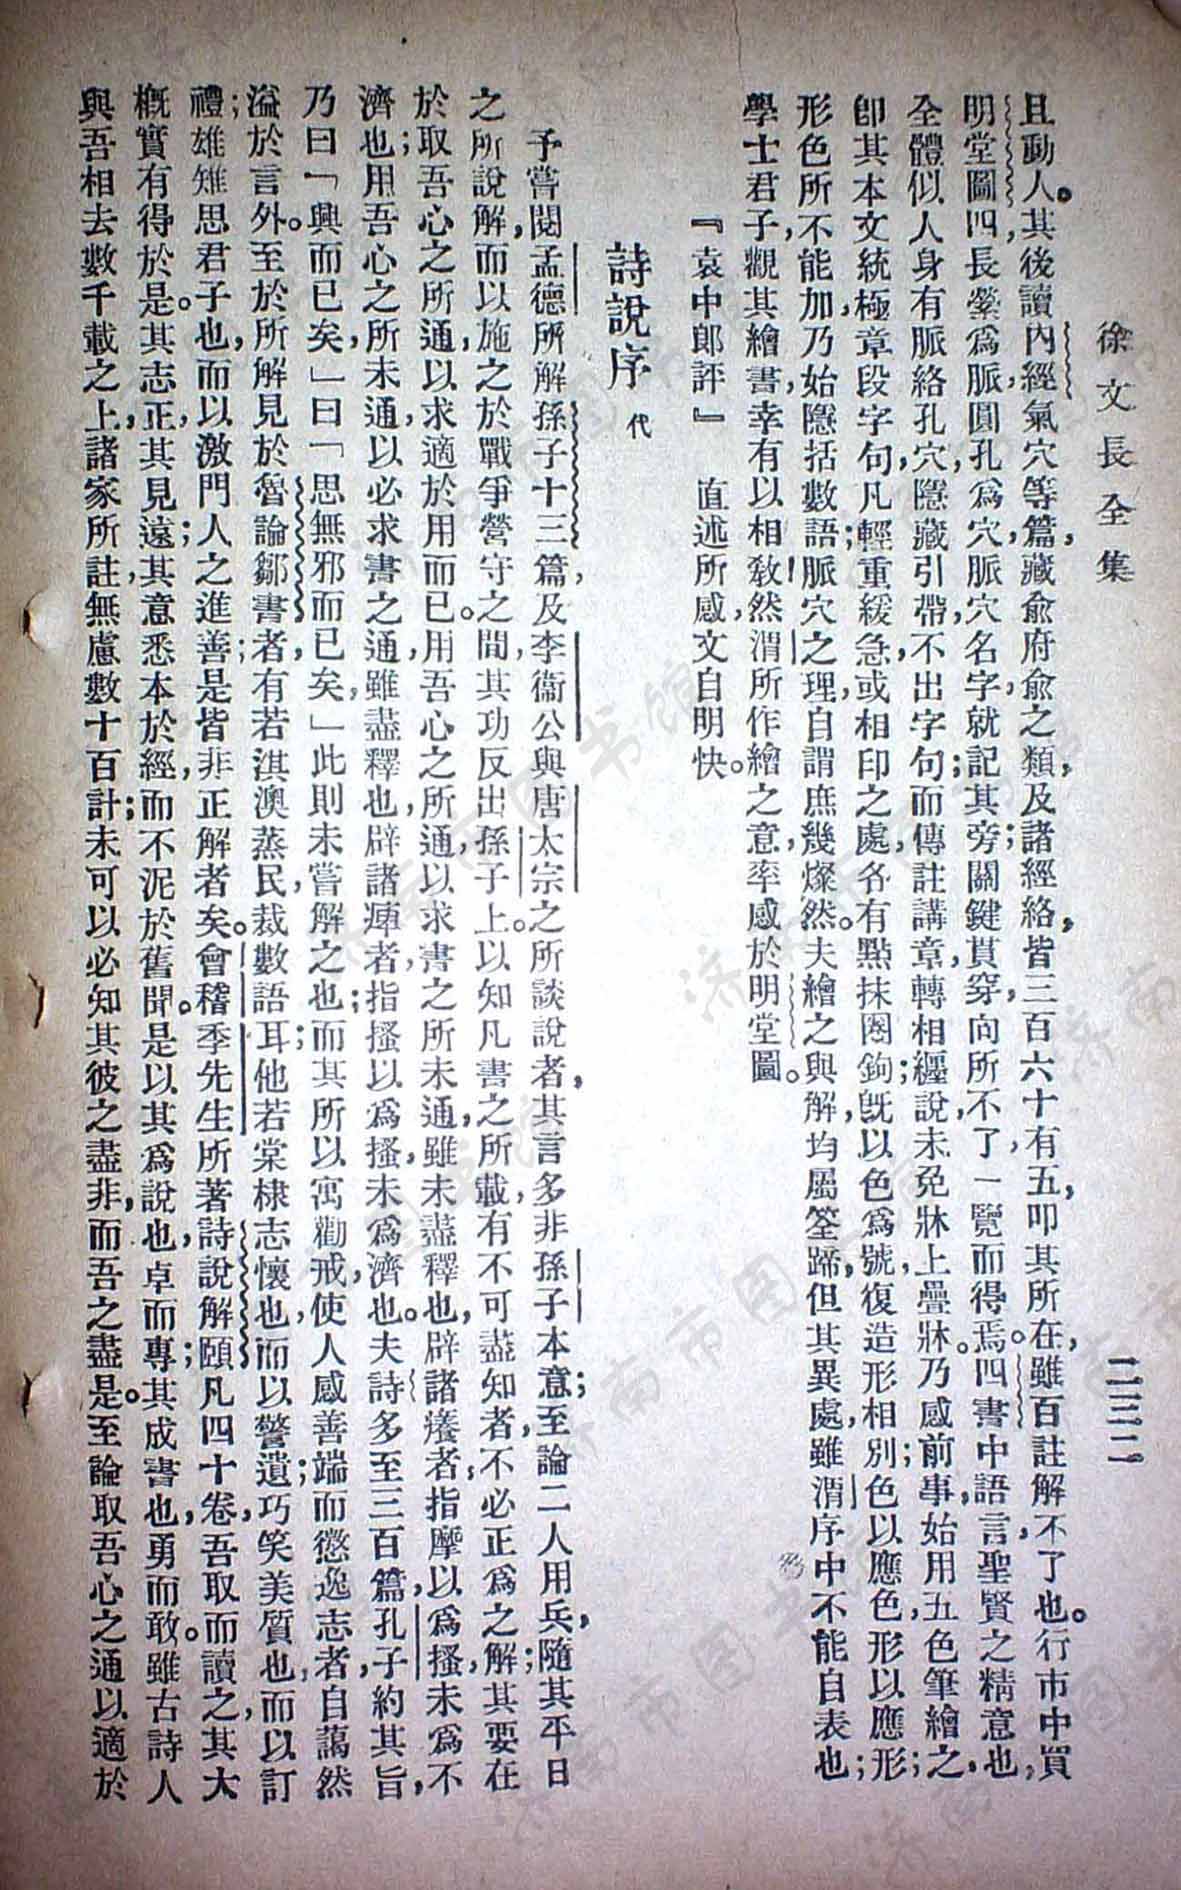 徐文長全集
二三二
且動人。其後讀內經氣穴等篇，藏俞府俞之類，及諸經絡，皆三百六十有五，叩其所在，雖百註解不了也。行市中買
明堂圖四，長縈爲脈，圓孔爲穴，脈穴名字，就記其旁；關鍵貫穿，向所不了，一覽而得焉。四書中語言，聖賢之精意也，
全體似人身有脈絡孔穴，隱藏引帶，不出字句；而傳註講章，轉相纏說，未免牀上疊牀。乃感前事，始用五色筆繪之；
卽其本文統極章段字句，凡輕重緩急，或相印之處，各有點抹圈鉤；旣以色爲號，復造形相別；色以應色，形以應形；
形色所不能加，乃始隱括數語；脈穴之理，自謂庶幾燦然。夫繪之與解，均屬筌蹄，但其異處，雖渭序中不能自表也；
學士君子，觀其繪書，幸有以相敎，然渭所作繪之意，率感於明堂圖。
『袁中郞評』　直述所感，文自明快。
詩說序　代
予嘗閱孟德所解孫子十三篇，及李衞公與唐太宗之所談說者，其言多非孫子本意；至論二人用兵，隨其平日
之所說解，而以施之於戰爭營守之間，其功反出孫子上。以知凡書之所載，有不可盡知者，不必正爲之解；其要在
於取吾心之所通，以求適於用而已。用吾心之所通，以求書之所未通，雖未盡釋也，辟諸癢者，指摩以爲搔，未爲不
濟也；用吾心之所未通，以必求書之通，雖盡釋也，辟諸痺者，指搔以爲搔，未爲濟也。夫詩多至三百篇，孔子約其旨，
乃曰「興而已矣，」曰「思無邪而已矣，」此則未嘗解之也；而其所以寓勸戒，使人感善端而懲逸志者，自藹然
溢於言外。至於所解見於魯論鄒書者，有若淇澳蒸民，裁數語耳；他若棠棣志懷也，而以警遺；巧笑美質也，而以訂
禮；雄雉思君子也，而以激門人之進善；是皆非正解者矣。會稽季先生所著詩說解頤凡四十卷，吾取而讀之，其大
槪實有得於是。其志正，其見遠；其意悉本於經，而不泥於舊聞。是以其爲說也，卓而專；其成書也，勇而敢。雖古詩人
與吾相去數千載之上，諸家所註無慮數十百計；未可以必知其彼之盡非，而吾之盡是。至論取吾心之通，以適於